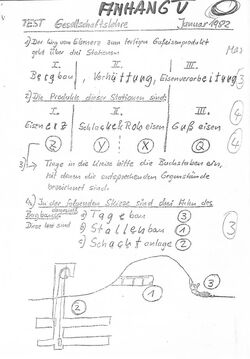 ANHANG V
TEST Gesellschaftslehre Januar 1982
1) Der Weg vom Eisenerz zum fertigen Gußeisenprodukt
geht über drei Stationen
I. II. III.
Bergbau, Verhüttung, Eisenverarbeitung 3
2) Die Produkte dieser Stationen sind:
I. II. III.
Eisenerz Schlacke Roheisen Gußeisen 4
Z Y X Q 4
3) Trage in die Kreise bitte die Buchstaben ein,
mit denen die entsprechenden Gegenstände
bezeichnet sind.
4) In der folgenden Skizze sind drei Arten des
Bergbaus
Diese drei sind
Tagebau 3
Stollenbau 1
Schachtanlage 2
3
1
2
3